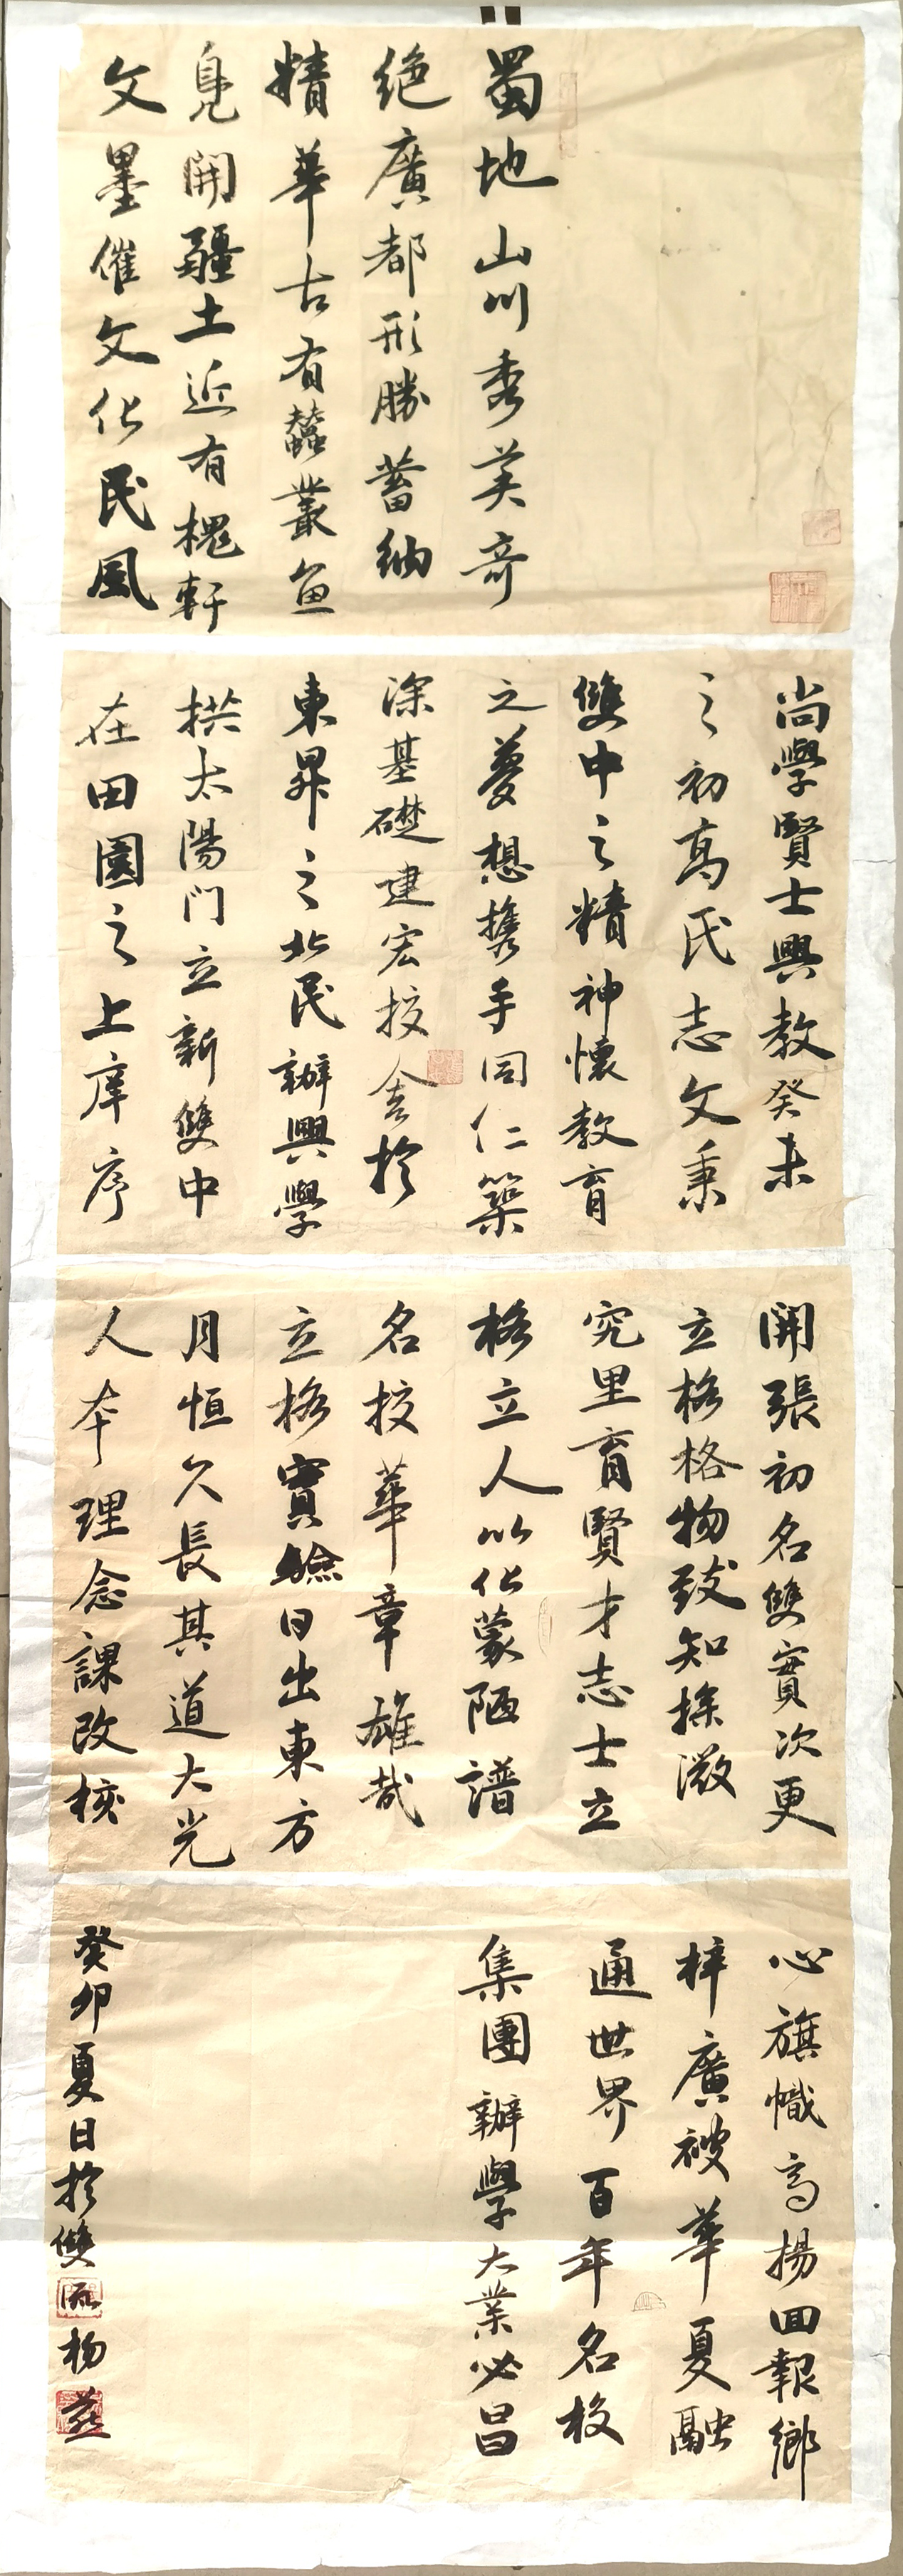 蜀地山川秀美奇
绝廣都形勝蓄纳
精華古有蠶叢魚
鳧開疆土近有槐軒
文墨催文化民風
尚學賢士興教癸未
之初高氏志文秉
雙中之精神懷教育
之夢想携手同仁築
深基礎建宏校舍於
東昇之北民辦興學
拱太陽門立新雙中
在田園之上庠序
開張初名雙實次更
立格格物致知探微
究里育賢才志士立
格立人以化蒙陋譜
名校華章雄哉
立格實驗日出東方
月恒久長其道大光
人本理念課改核
心旗幟高揚回報鄉
梓廣被華夏融
通世界百年名校
集團辦學大業必昌
癸卯夏日於雙流楊燕